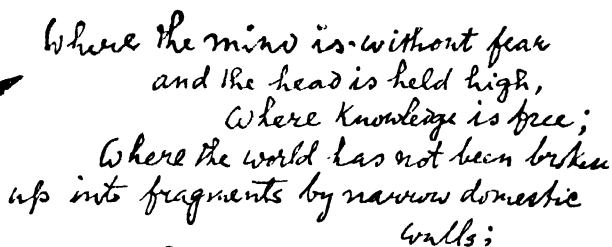 Where the mind is without fear
and the head is held high,
Where knowledge is free;
Where the world has not been broken
up into fragments by narrow domestic
walls;